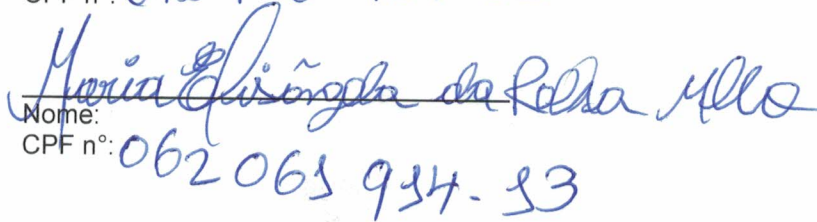 Maria Elisângela da Rocha Mello
Nome:
CPF n°: 062 061 914-13